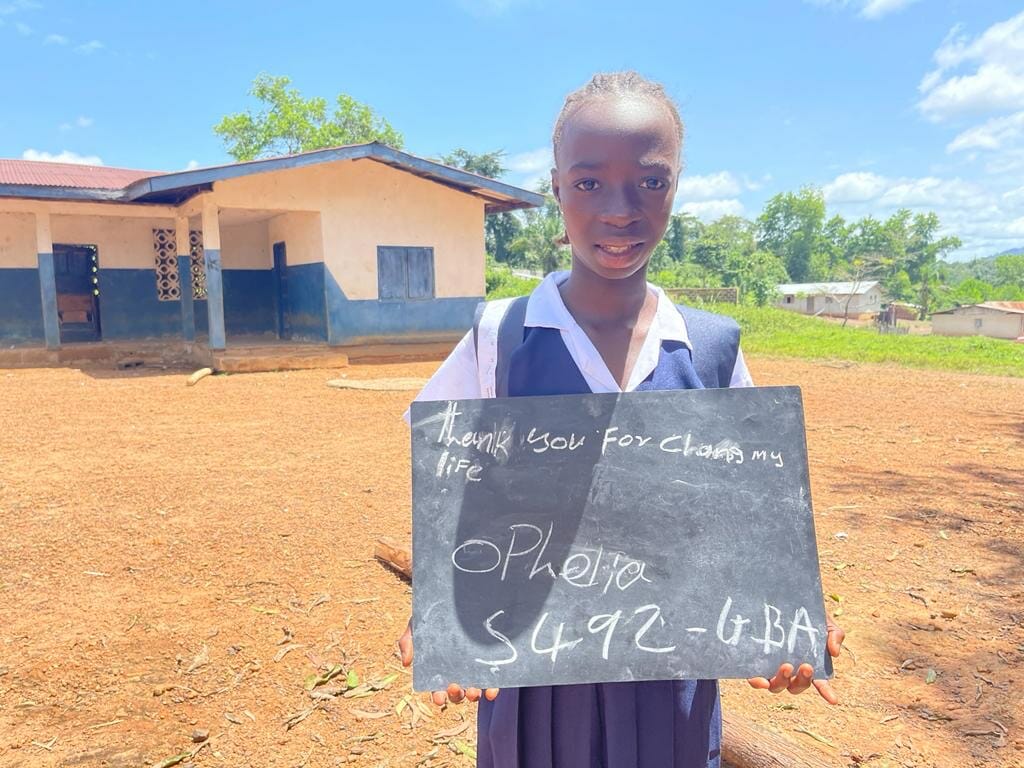 Thank you For Chang my
life
OPhelia
S492-GBA